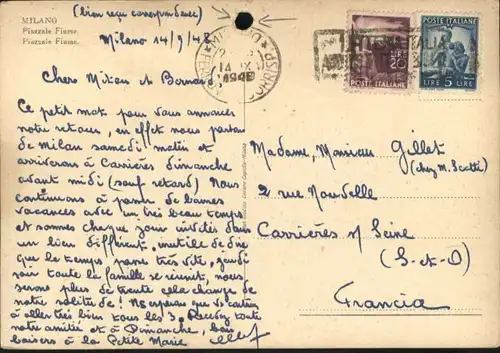 MILANO
Piazzale Fiume.
Piazzale Fiume.
(bien reçu correspondance)
Milano 14/9/48
Chers Mitou et Bernard,
Ce petit mot pour vous annoncer
notre retour, en effet nous partons
de Milan samedi matin et
arriverons à Carrières dimanche
avant midi (sauf retard) Nous
continuons à passer de bonnes
vacances avec un très beau temps
et sommes chaque jour invités dans
un lieu différent, inutile de dire
que le temps passe très vite, jeudi
soir toute la famille se réunit, nous
serons plus de trente cela change de
notre solitude! Ns espérons que
à aller très bien tous les 3. Recevez toute
notre amitié et à Dimanche, bons
baisers à la Petite Marie
POSTE ITALIANE
LIRE 20
POSTE ITALIANE
LIRE 5 LIRE
Madame, Monsieur Gillet
(chez M. Scotti)
2 rue Nouvelle
Carrières s/ Seine
(S-et-O)
Francia